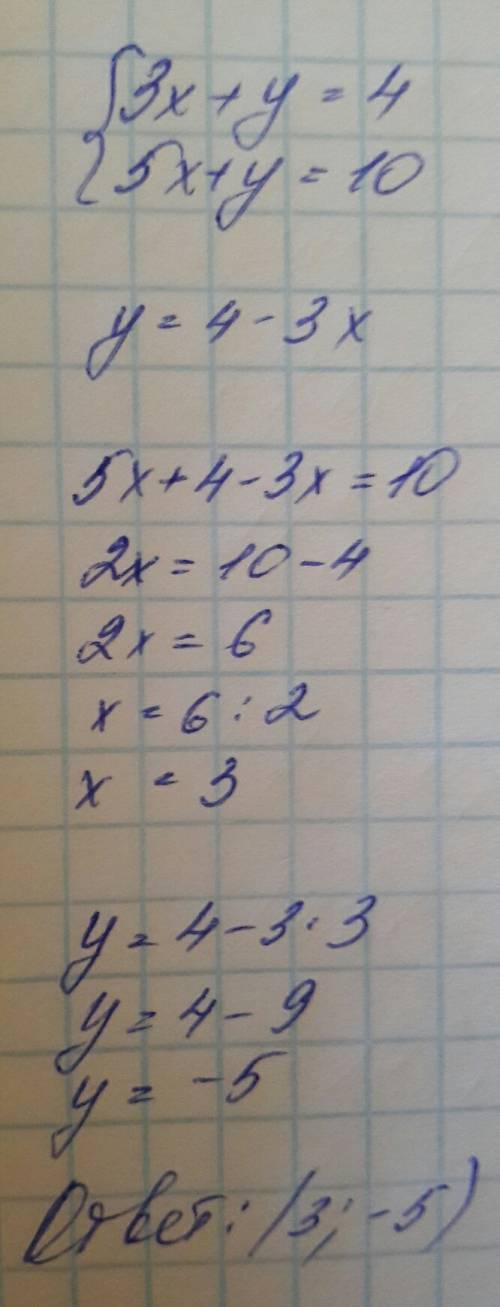 {3x + y = 4
{5x + y = 10
y = 4 - 3x
5x + 4 - 3x = 10
2x = 10 - 4
2x = 6
x = 6 : 2
x = 3
y = 4 - 3 · 3
y = 4 - 9
y = -5
Ответ: (3; -5)